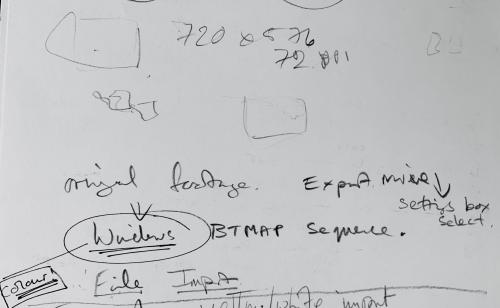 720 x 576
72
original footage. Export movie
settings box
select.
Windows BTMAP Sequence.
colour
File Import
white import